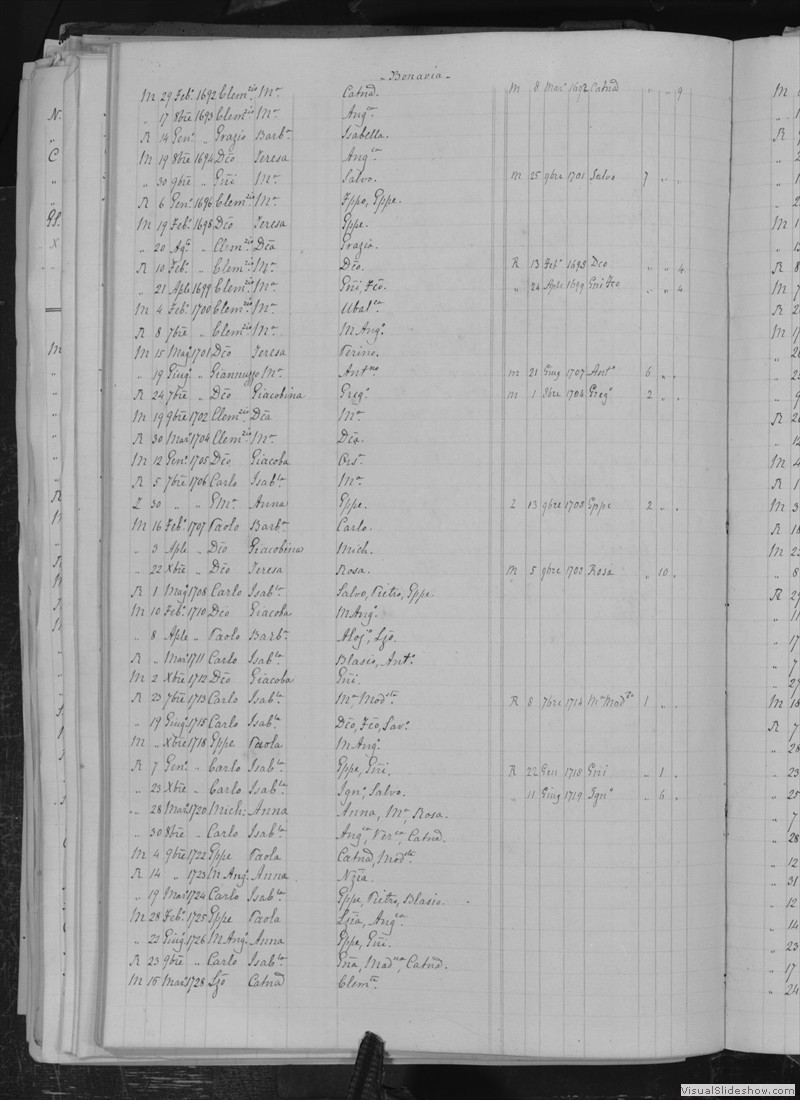 - Bonavia -
M 29 Feb.º 1692 Clem.zio M.a Catnd. M 8 Mar.o 1692 Catnd " " 9
" 17 8bre 1693 Clem.zio M.a Ang.ca
R 14 Gen.o " Grazio Barb.a Isabella.
M 19 8bre 1694 Dco Teresa Ang.ca
" 30 9bre " Gñi M.a Salvo. M 25 9bre 1701 Salvo 7 " "
R 6 Gen.o 1696 Clem.zio M.a Fppo, Gppe.
M 19 Feb.o 1698 Dco Teresa Gppe.
" 20 Ag.o " Clem.zio Dca Grazio.
R 10 Feb.o " Clem.zio M.a Dco. R 13 Feb.o 1698 Dco " " 4
" 21 Aple 1699 Clem.zio M.a Gñi, Fco. " 24 Aple 1699 Gñi Fco " " 4
M 4 Feb.o 1700 Clem.zio M.a Ubal.ca
R 8 7bre " Clem.zio M.a M Ang.o
M 15 Mag.o 1701 Dco Teresa Verino.
" 19 Giug.o " Giannuzzo M.a Ant.no M 21 Giug 1707 Ant.o 6 " "
R 24 7bre " Dco Giacobina Greg.o M 1 8bre 1704 Greg.o 2 " "
M 19 9bre 1702 Clem.zio Dca M.a
R 30 Mar.o 1704 Clem.zio M.a Dca.
M 12 Gen.o 1705 Dco Giacoba Ors.a
R 5 7bre 1706 Carlo Isab.la M.a
Z 30 " " Gm.a Anna Gppe. Z 13 9bre 1708 Gppe 2 " "
M 16 Feb.o 1707 Paolo Barb.a Carlo.
" 3 Aple " Dco Giacobina Mich.
" 22 Xbre " Dco Teresa Rosa. M 5 9bre 1708 Rosa " 10 "
R 1 Mag.o 1708 Carlo Isab.la Salvo, Pietro, Gppe.
M 10 Feb.o 1710 Dco Giacoba M Ang.o
" 8 Aple " Paolo Barb.a Aloj.o, Lzo.
R " Mar.o 1711 Carlo Isab.la Blasio, Ant.o
M 2 Xbre 1712 Dco Giacoba Gñi.
R 23 7bre 1713 Carlo Isab.la M.a, Mod.ta R 8 7bre 1714 M.a Mod.ta 1 " "
" 19 Giug.o 1715 Carlo Isab.la Dco, Fco, Sav.o
M " Xbre 1718 Gppe Paola M Ang.o
R 7 Gen.o " Carlo Isab.la Gppe, Gñi. R 22 Gen 1718 Gñi " 1 "
" 23 Xbre " Carlo Isab.la Ign.o Salvo. " 11 Giug 1719 Ign.o " 6 "
" 28 Mar.o 1720 Mich: Anna Anna, M.a, Rosa.
" 30 8bre " Carlo Isab.la Ang.ca, Ver.ca, Catnd.
M 4 9bre 1722 Gppe Paola Catnd, Mod.ta
R 14 " 1723 M Ang.o Anna Nzia.
" 19 Mar.o 1724 Carlo Isab.la Gppe, Pietro, Blasio.
M 28 Feb.o 1725 Gppe Paola Lzia, Ang.ca
" 22 Giug.o 1726 M Ang.o Anna Gppe, Gñi.
R 23 9bre " Carlo Isab.la Gña, Mad.na, Catnd.
M 15 Mar.o 1728 Lzo Catnd Clem.za
VisualSlideshow.com